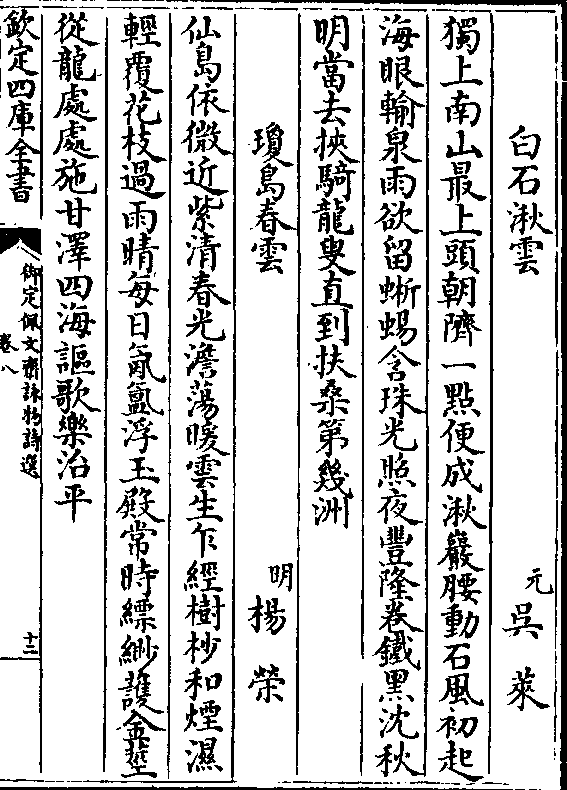 白石湫雲　元　吳萊
獨上南山最上頭朝隮一點便成湫巖腰動石風初起
海眼輸泉雨欲留蜥蜴含珠光照夜豐隆卷鐵黑沈秋
明當去挾騎龍叟直到扶桑第幾洲
瓊島春雲　明　楊榮
仙島依微近紫清春光澹蕩暖雲生乍經樹杪和煙濕
輕覆花枝過雨晴每日氤氲浮玉殿常時縹緲護金莖
從龍處處施甘澤四海謳歌樂治平
欽定四庫全書
御定佩文齋詠物詩選
卷八
十二